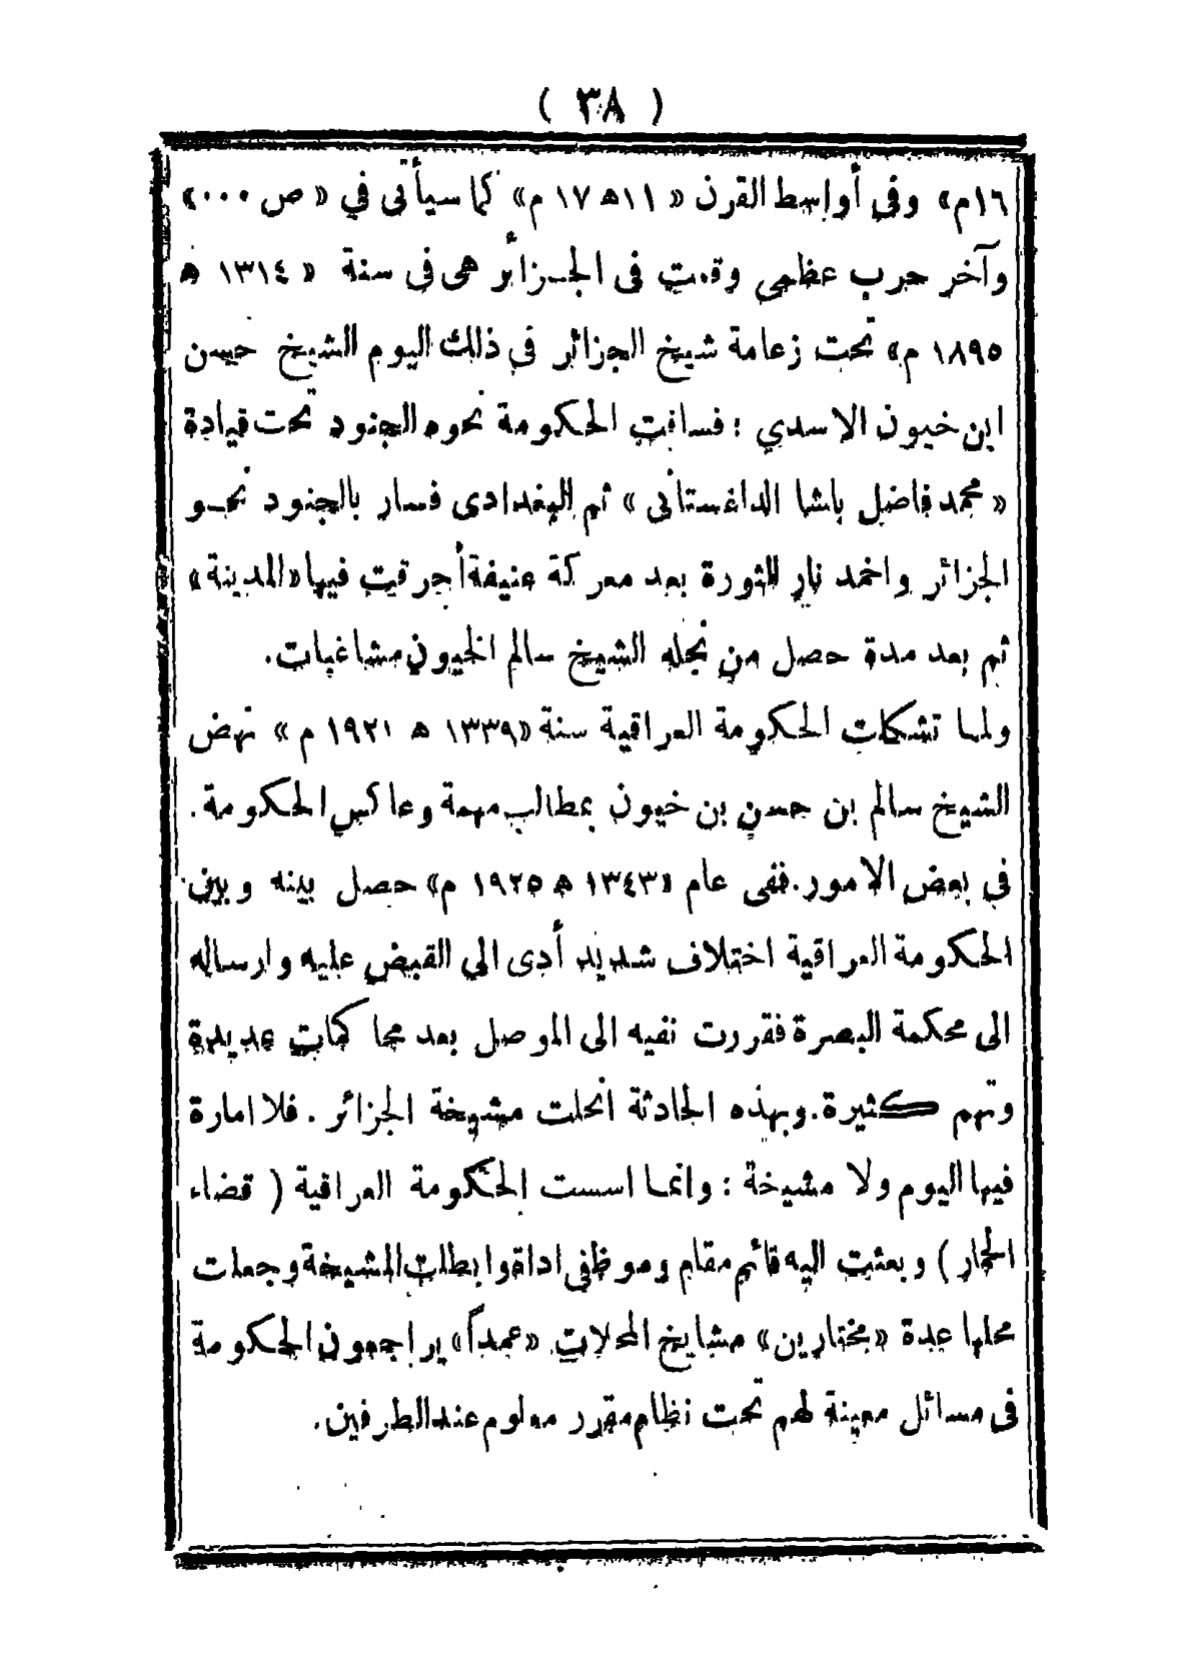 ( ٣٨ )
١٦م» وفي أواسط القرن « ١١ﻫ ١٧ م» كما سيأتى في « ص ٠٠٠»
وآخر حرب عظمى وقعت فى الجزائر هى فى سنة « ١٣١٤ ﻫ
١٨٩٥ م» تحت زعامة شيخ الجزائر في ذلك اليوم الشيخ حسن
ابن خيون الاسدي : فساقت الحكومة نحوه الجنود تحت قيادة
« محمد فاضل باشا الداغستانى » ثم البغدادى فسار بالجنود نحو
الجزائر واخمد نار الثورة بعد معركة عنيفة أحرقت فيها «المدينة»
ثم بعد مدة حصل من نجله الشيخ سالم الخيون مشاغبات.
ولما تشكلت الحكومة العراقية سنة «١٣٣٩ ﻫ ١٩٢١ م» نهض
الشيخ سالم بن حسن بن خيون بمطالب مهمة وعاكس الحكومة.
في بعض الامور. ففى عام «١٣٤٣ ﻫ ١٩٢٥ م» حصل بينه وبين
الحكومة العراقية اختلاف شديد أدى الي القبض عليه وارساله
الى محكمة البصرة فقررت نفيه الى الموصل بعد محاكمات عديدة
وتهم كثيرة. وبهذه الحادثة انحلت مشيخة الجزائر . فلا امارة
فيها اليوم ولا مشيخة : وانما اسست الحكومة العراقية ( قضاء
الحمار ) وبعثت اليه قائم مقام وموظفى اداة وابطلت المشيخة وجعلت
محلها عدة «مختارين» مشايخ المحلات «عمداً» يراجعون الحكومة
فى مسائل معينة لهم تحت نظام مقرر معلوم عند الطرفين.